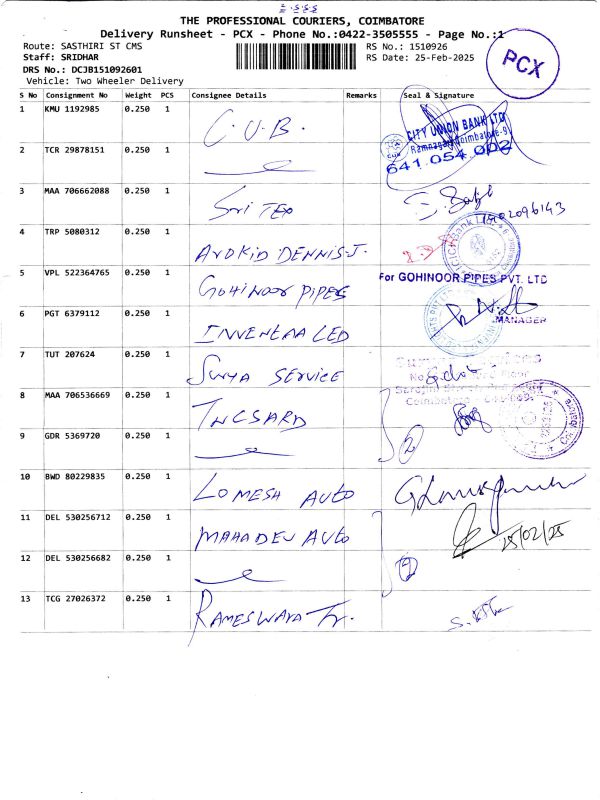 THE PROFESSIONAL COURIERS, COIMBATORE
Delivery Runsheet - PCX - Phone No.:0422-3505555 - Page No.:1
Route: SASTHIRI ST CMS
RS No.: 1510926
Staff: SRIDHAR
RS Date: 25-Feb-2025
DRS No.: DCJB151092601
Vehicle: Two Wheeler Delivery
PCX
S No Consignment No Weight PCS Consignee Details Remarks Seal & Signature
1 KMU 1192985 0.250 1 C.U.B.
CITY UNION BANK LTD
Ramnagar, Coimbatore-9
641.054.002
2 TCR 29878151 0.250 1
3 MAA 706662088 0.250 1 Sri Tex
4 TRP 5080312 0.250 1 AROKID DENNIS.J.
5 VPL 522364765 0.250 1 GOHINOOR PIPES
For GOHINOOR PIPES PVT. LTD
MANAGER
6 PGT 6379112 0.250 1 INVENTAA LED
7 TUT 207624 0.250 1 SURYA SERVICE
8 MAA 706536669 0.250 1 TNCSARD
9 GDR 5369720 0.250 1
2
10 BWD 80229835 0.250 1 LOMESH AUTO
11 DEL 530256712 0.250 1 MAHADEV AUTO
25/02/25
12 DEL 530256682 0.250 1
2
13 TCG 27026372 0.250 1 RAMESWARA Tr.